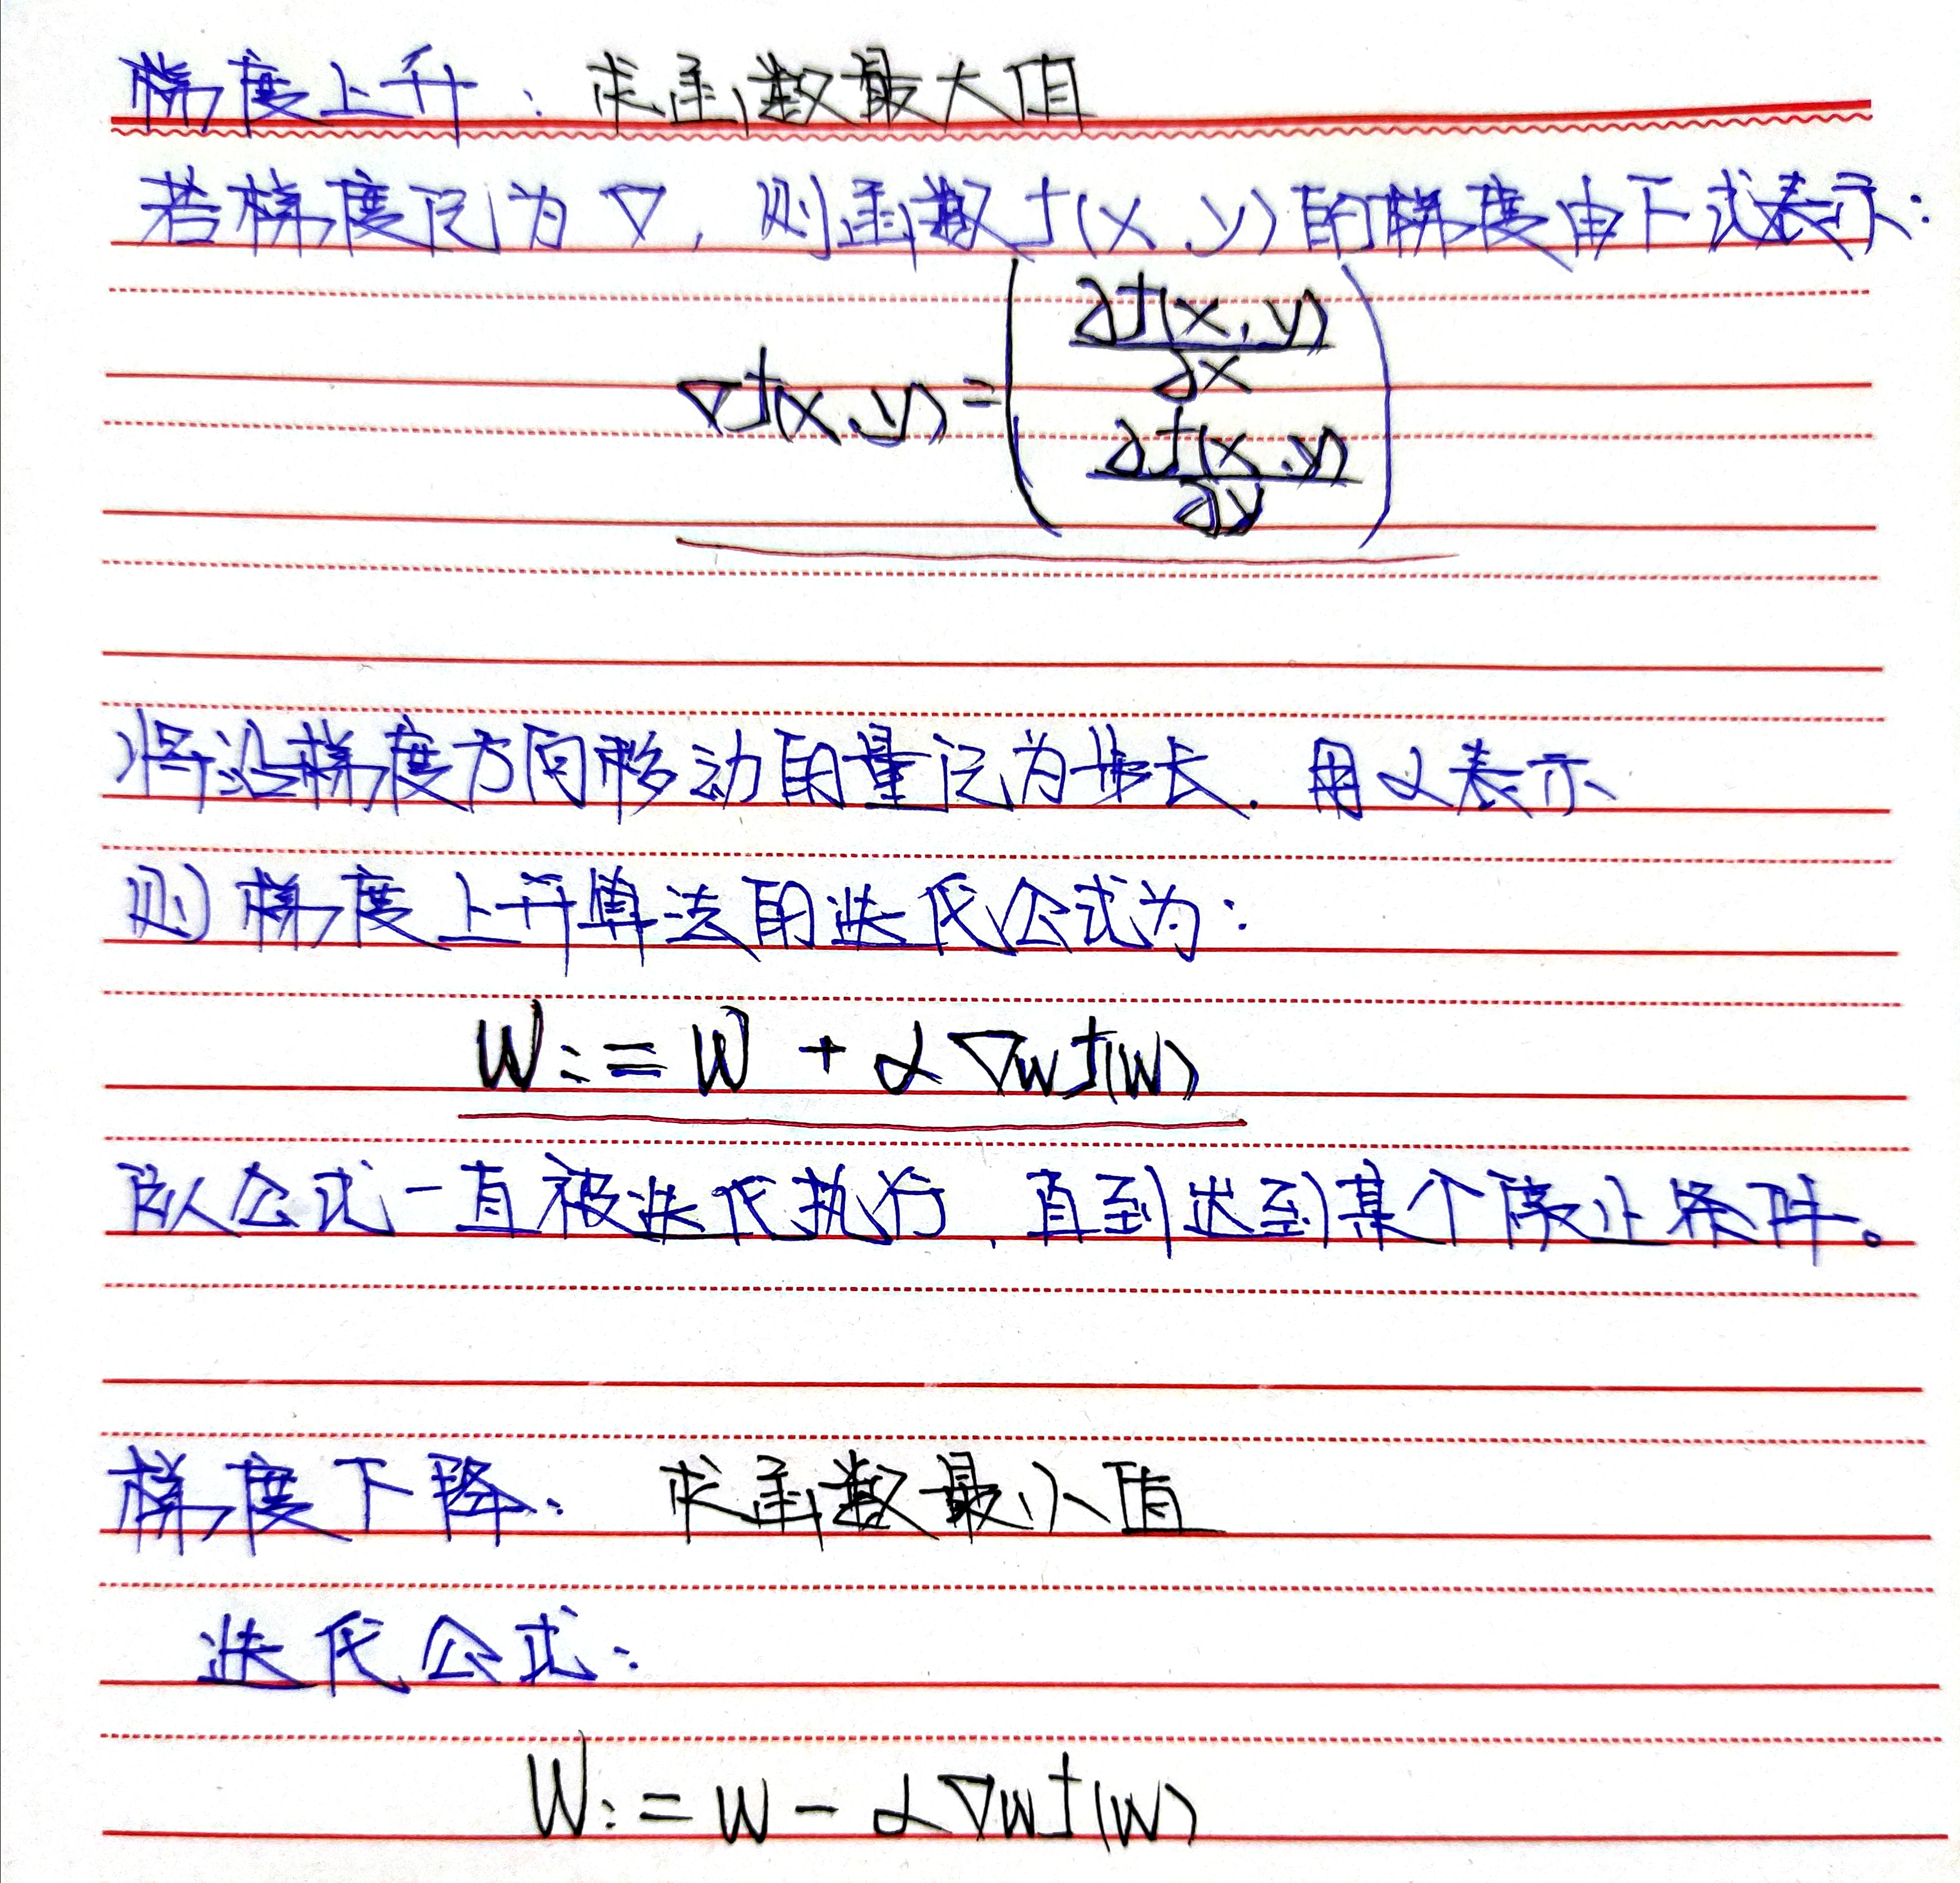 梯度上升：求函数最大值
若梯度记为∇，则函数f(x,y)的梯度由下式表示：
∇f(x,y)=(∂f(x,y)/∂x
∂f(x,y)/∂y)
将沿梯度方向移动的量记为步长，用α表示
则梯度上升算法的迭代公式为：
W:=W+α∇wf(W)
公式一直被迭代执行，直到达到某个停止条件。
梯度下降：求函数最小值
迭代公式：
W:=W-α∇wf(W)